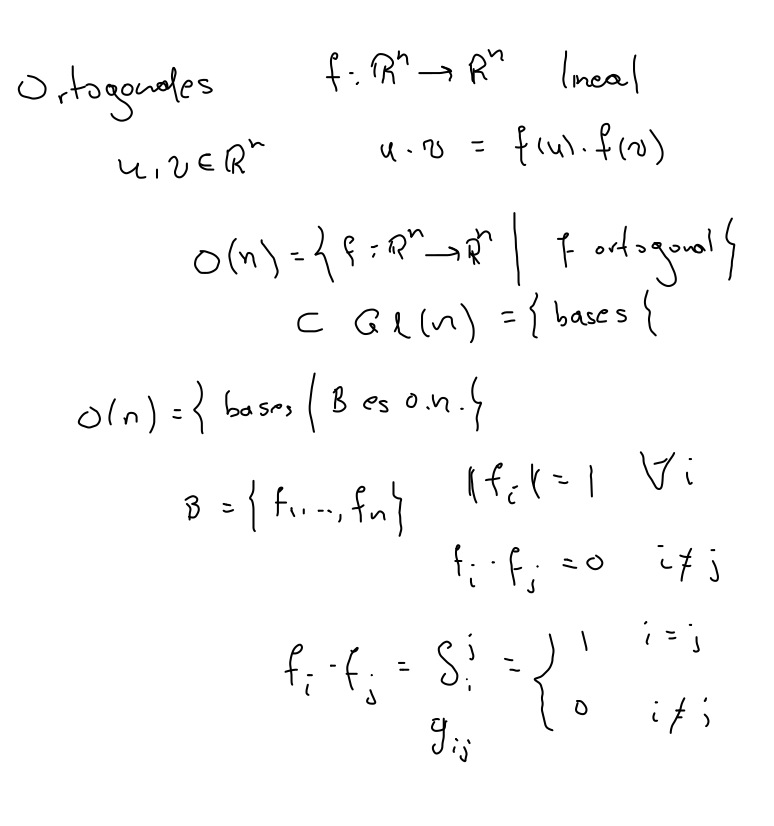 Ortogonales f: ℝⁿ → ℝⁿ lineal
u, v ∈ ℝⁿ u · v = f(u) · f(v)
O(n) = { f : ℝⁿ → ℝⁿ | f ortogonal }
⊂ Gl(n) = { bases }
O(n) = { bases / B es o.n. }
B = { f₁, ..., fₙ } |fᵢ| = 1 ∀ i
fᵢ · fⱼ = 0 i ≠ j
fᵢ · fⱼ = δᵢʲ = { 1 i = j
0 i ≠ j
gᵢⱼ